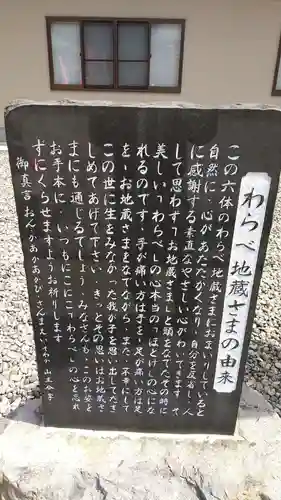 わらべ地蔵さまの由来
この六体のわらべ地蔵さまにおまいりしていると
自然に、心があたたかくなり、自分を反省し、人
に感謝する素直なやさしい心がわいてきます そ
して思わず「お地蔵さま」と頭をなでたその時に
美しい「わらべ」の心本当の「ほとけ」の心にな
れるのです 手が痛い方は手を 足が痛い方は足
を お地蔵さまをなでながら また、不幸にして
この世に生をみなかった我が子を思い出してだき
しめてあげて下さい きっとその思いはお地蔵さ
まにも通じるでしょう みなさんも、このお姿を
お手本に、いつもにこにこ「わらべ」の心を忘れ
ずにくらせますようお祈りします
御真言 おん かあかあかび さんまえい そわか